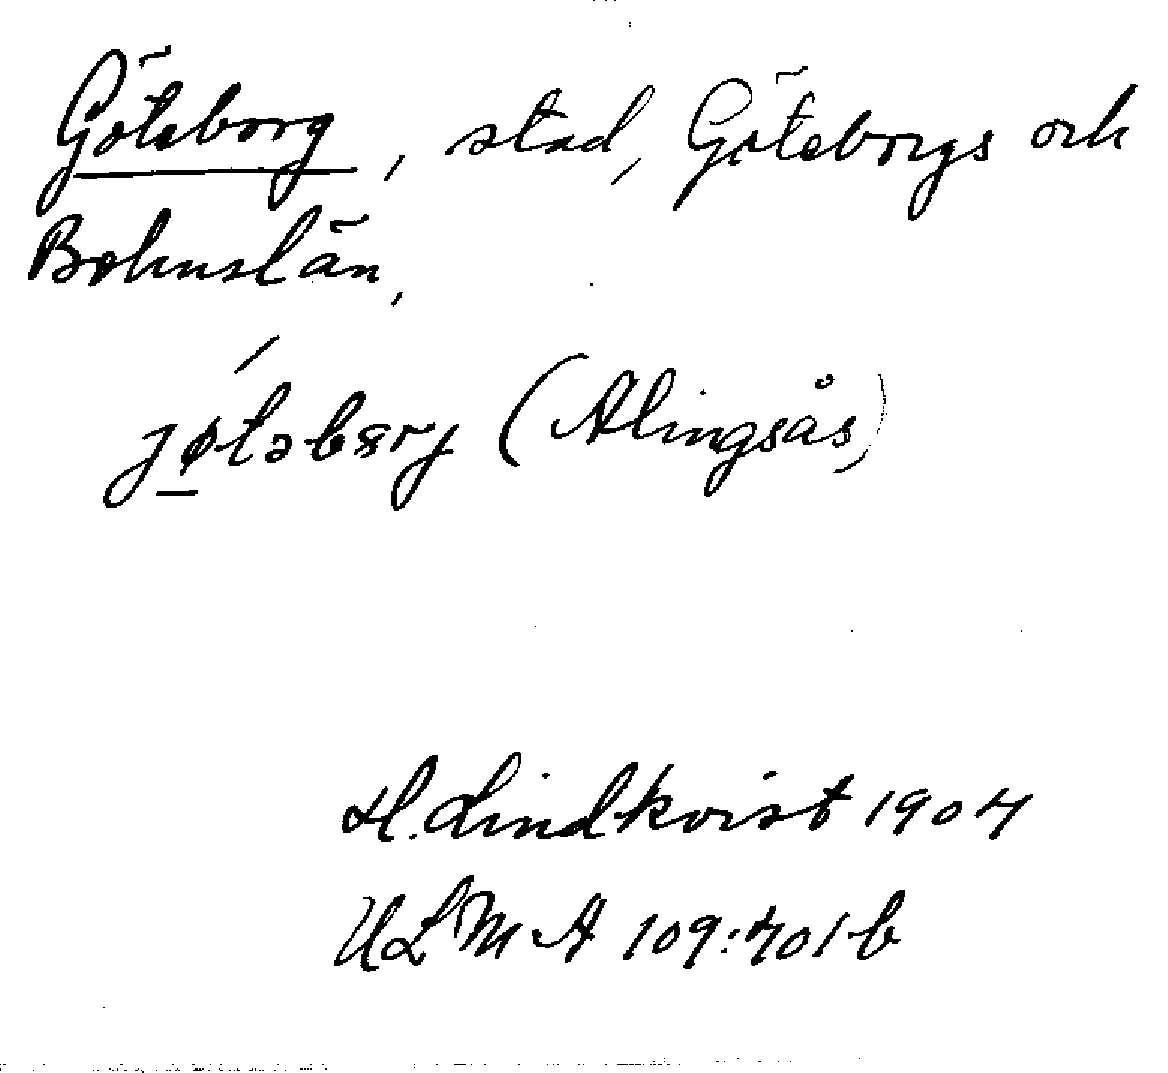 Göteborg, stad, Göteborgs och
Bohuslän,
jøtəbɞrj (Alingsås)
H. Lindkvist 1904
ULMA 109:401 b